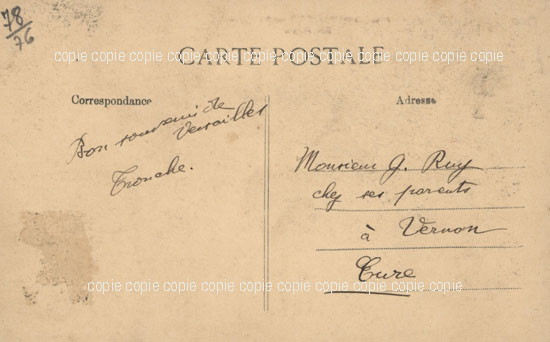 78
76
copie copie copie copie copie copie copie copie copie copie copie
CARTE POSTALE
Correspondance
Adresse
Bon souvenir de
Versailles
Tronche.
copie copie copie copie copie copie copie copie copie copie copie
Monsieur G. Ruy
chez ses parents
à Vernon
Eure
copie copie copie copie copie copie copie copie copie copie